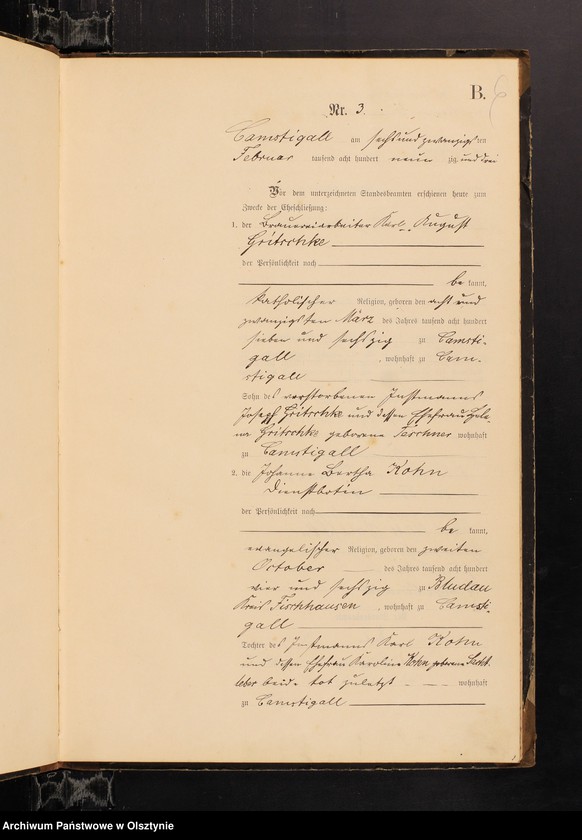 B.
6
Nr. 3.
Camstigall am sechsundzwanzigsten
Februar tausend acht hundert neun zig und drei
Vor dem unterzeichneten Standesbeamten erschienen heute zum
Zwecke der Eheschließung:
1. der Brauereiarbeiter Karl August
Gritschke
der Persönlichkeit nach
be kannt,
katholischer Religion, geboren den acht und
zwanzigsten März des Jahres tausend acht hundert
sieben und sechszig zu Camsti-
gall, wohnhaft zu Cam-
stigall
Sohn des verstorbenen Instmanns
Joseph Gritschke und dessen Ehefrau Hele-
na Gritschke geborene wohnhaft
zu Camstigall
2. die Johanne Bertha Kohn
Dienstbotin
der Persönlichkeit nach
be kannt,
evangelischer Religion, geboren den zweiten
October des Jahres tausend acht hundert
vier und sechszig zu Bludau
Kreis Fischhausen, wohnhaft zu Camsti-
gall
Tochter des Instmanns Karl Kohn
und dessen Ehefrau Karoline Kohn geborene
beide tot zuletzt wohnhaft
zu Camstigall
Archiwum Państwowe w Olsztynie